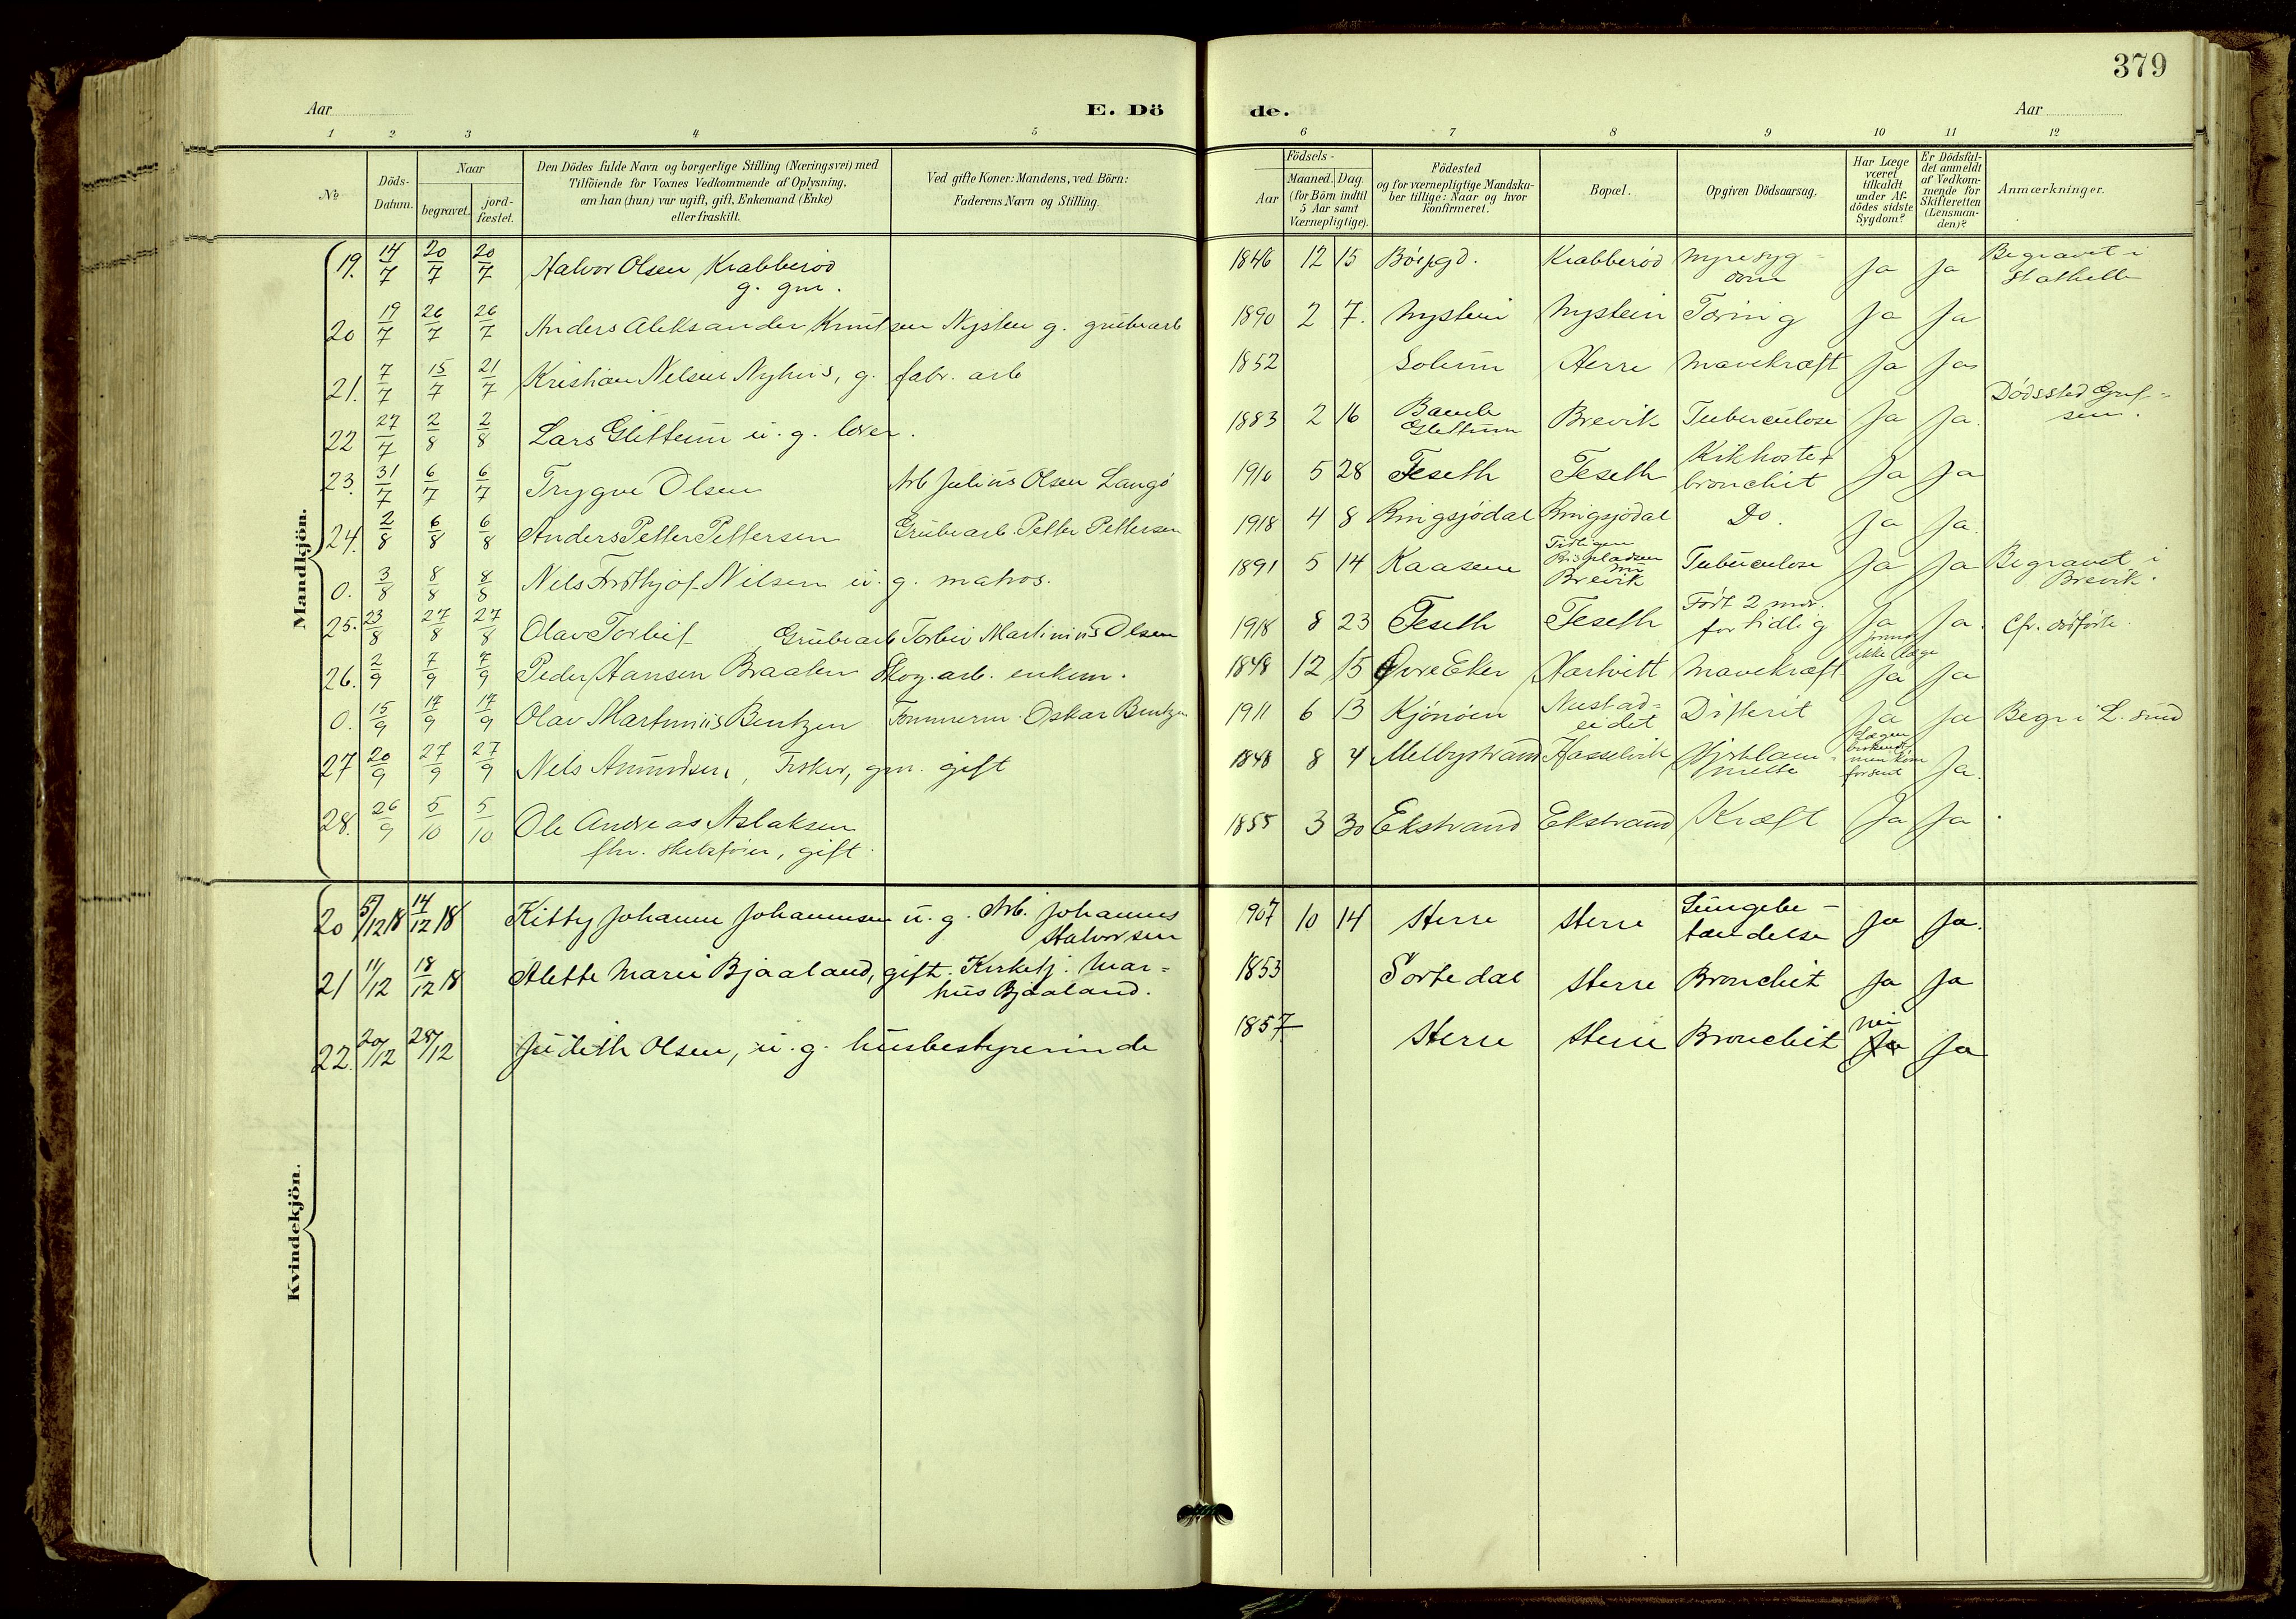 379
Aar
E. Dö
de.
Aar
1 2 3 4 5 6 7 8 9 10 11 12
No
Döds-Datum.
Naar
begravet.
jord-fæstet.
Den Dödes fulde Navn og borgerlige Stilling (Næringsvei) med
Tilföiende for Voxnes Vedkommende af Oplysning,
om han (hun) var ugift, gift, Enkemand (Enke)
eller fraskilt.
Ved gifte Koner: Mandens, ved Börn:
Faderens Navn og Stilling.
Födsels-
Aar
Maaned. Dag.
(for Börn indtil
5 Aar samt
Værnepligtige).
Födested
og for værnepligtige Mandska-
ber tillige: Naar og hvor
konfirmeret.
Bopæl.
Opgiven Dödsaarsag.
Har Læge
været
tilkaldt
under Af-
dödes sidste
Sygdom?
Er Dödsfal-
det anmeldt
af Vedkom-
mende for
Skifteretten
(Lensman-
den)?
Anmærkninger.
Mandkjön.
19. 14/7 20/7 20/7 Halvor Olsen Krabberød g. gm. 1846 12 15 Krabberød Nyresyg-dom Ja Ja Begravet i Stathelle
20 19/7 26/7 26/7 Anders Aleksander Knutsen Nystein g. grubearb 1890 2 7. Nystein Nystein Tæring Ja Ja
21. 7/7 15/7 21/7 Kristian Nelsen Nyhus, g. fabr. arb 1852 Solum Herre Mavekræft Ja Ja
22 27/7 2/8 2/8 Lars Glittum u. g. lærer. 1883 2 16 Bamle Glittum Brevik Tuberculose Ja Ja. Dødssted Gref-sen.
23. 31/7 6/7 6/7 Trygve Olsen Arb Julius Olsen Langö 1910 5 28 Feseth Feseth Kikhoste + bronchit Ja Ja
24. 2/8 6/8 6/8 Anders Petter Pettersen Grubearb. Petter Pettersen 1918 4 8 Ringsjödal Ringsjödal Do. Ja Ja.
0. 3/8 8/8 8/8 Nils Fridthjof Nilsen u. g. matros. 1891 5 14 Kaasene Tidligere nu Brevik Tuberculose Ja Ja Begravet i Brevik.
25. 23/8 27/8 27/8 Olav Torleif Grubearb Torleiv Martinius Olsen 1918 8 23 Feseth Feseth Født 2 mdr. for tidlig Ja jormor ikke læge Ja. Cfr. dødfødte.
26. 2/9 7/9 7/9 Peder Hansen Braaten Skog. arb. enkem. 1848 12 15 Øvre Eker Hartvitt Mavekræft Ja Ja
0. 15/9 17/9 17/9 Olav Martinius Bentzen Tømmerm. Oskar Bentzen 1911 6 13 Kjönöen Nustad-eidet Difterit Ja Ja Begr i L. sund
27 20/9 27/9 27/9 Nels Amundsen, Fisker, gm. gift 1848 8 4 Melbystrand Hasselvik Hjertelam-melse Lægen men kom for sent Ja.
28. 26/9 5/10 5/10 Ole Andreas Aslaksen fhv. skibsfører, gift. 1855 3 30 Ekstrand Ekstrand Kræft Ja Ja
Kvindekjön.
20 5/12 18 14/12 18 Kitty Johanne Johannesen u. g. Arb. Johannes Halvorsen 907 10 14 Herre Herre Lungebe-tændelse Ja Ja.
21 11/12 18/12 18 Alette Marie Bjaaland, gift. Kirketj. Mar-kus Bjaaland. 1853 Sortedal Herre Bronchit Ja Ja
22. 20/12 28/12 Judith Olsen, u. g. husbestyrerinde 1857 Herre Herre Bronchit Nei Ja Ja